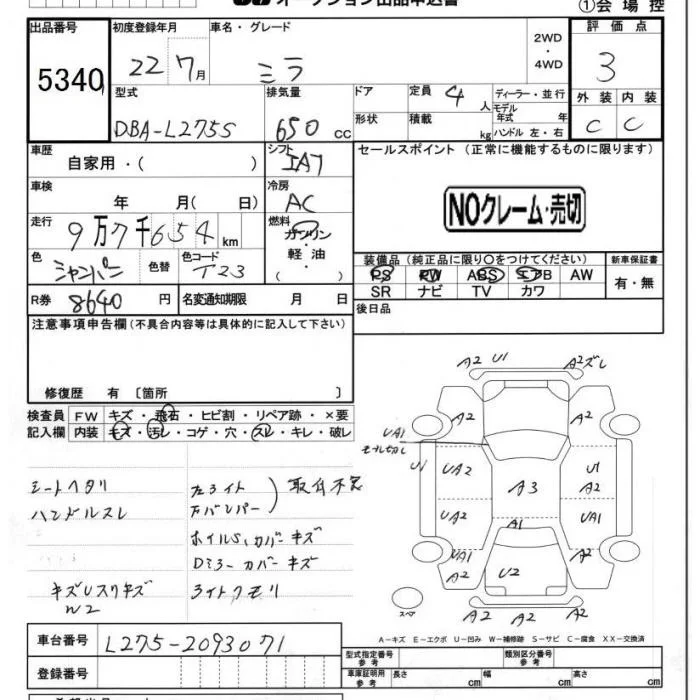 ①会場控
出品番号 初度登録年月 車名・グレード 2WD・4WD 評価点
5340 22 7月 ミラ 3
型式 排気量 ドア 定員 4人 ディーラー・並行 外装 内装
DBA-L275S 650cc 形状 積載 kg モデル年式 年 ハンドル 左・右 C C
車歴 シフト セールスポイント (正常に機能するものに限ります)
自家用・( ) IA7
車検 冷房 NOクレーム・売切
年 月( 日) AC
走行 燃料
9万7千654km ガソリン・軽油・( )
色 色替 色コード 装備品(純正品に限り○をつけてください) 新車保証書
シャンパン T23 PS PW ABS エアB AW 有・無
SR ナビ TV カワ
R券 8640円 名変通知期限 月 日 後日品
注意事項申告欄(不具合内容等は具体的に記入して下さい)
修復歴 有 〔箇所 〕
検査員 FW キズ・飛石・ヒビ割・リペア跡・×要
記入欄 内装 キズ・汚レ・コゲ・穴・スレ・キレ・破レ
シートヘタリ 左ライト 取付不忍
ハンドルスレ Fバンパー
ホイルS,カバーキズ
Dミラーカバーキズ
キズUスリキズ ライトクモリ
W2
A2 U1 A2ズレ
A2 A2
UA1
モール切レ
U1 UA2 A3 U1
A2
UA2 A1 UA1
UA1
A2 U2 A2
スペア A2 A2 A2
A-キズ E-エクボ U-凹み W-補修跡 S-サビ C-腐食 XX-交換済
車台番号 L275-2093071
型式指定番号 参考 類別区分番号 参考
登録番号 車庫証明用 参考 長さ cm 幅 cm 高さ cm